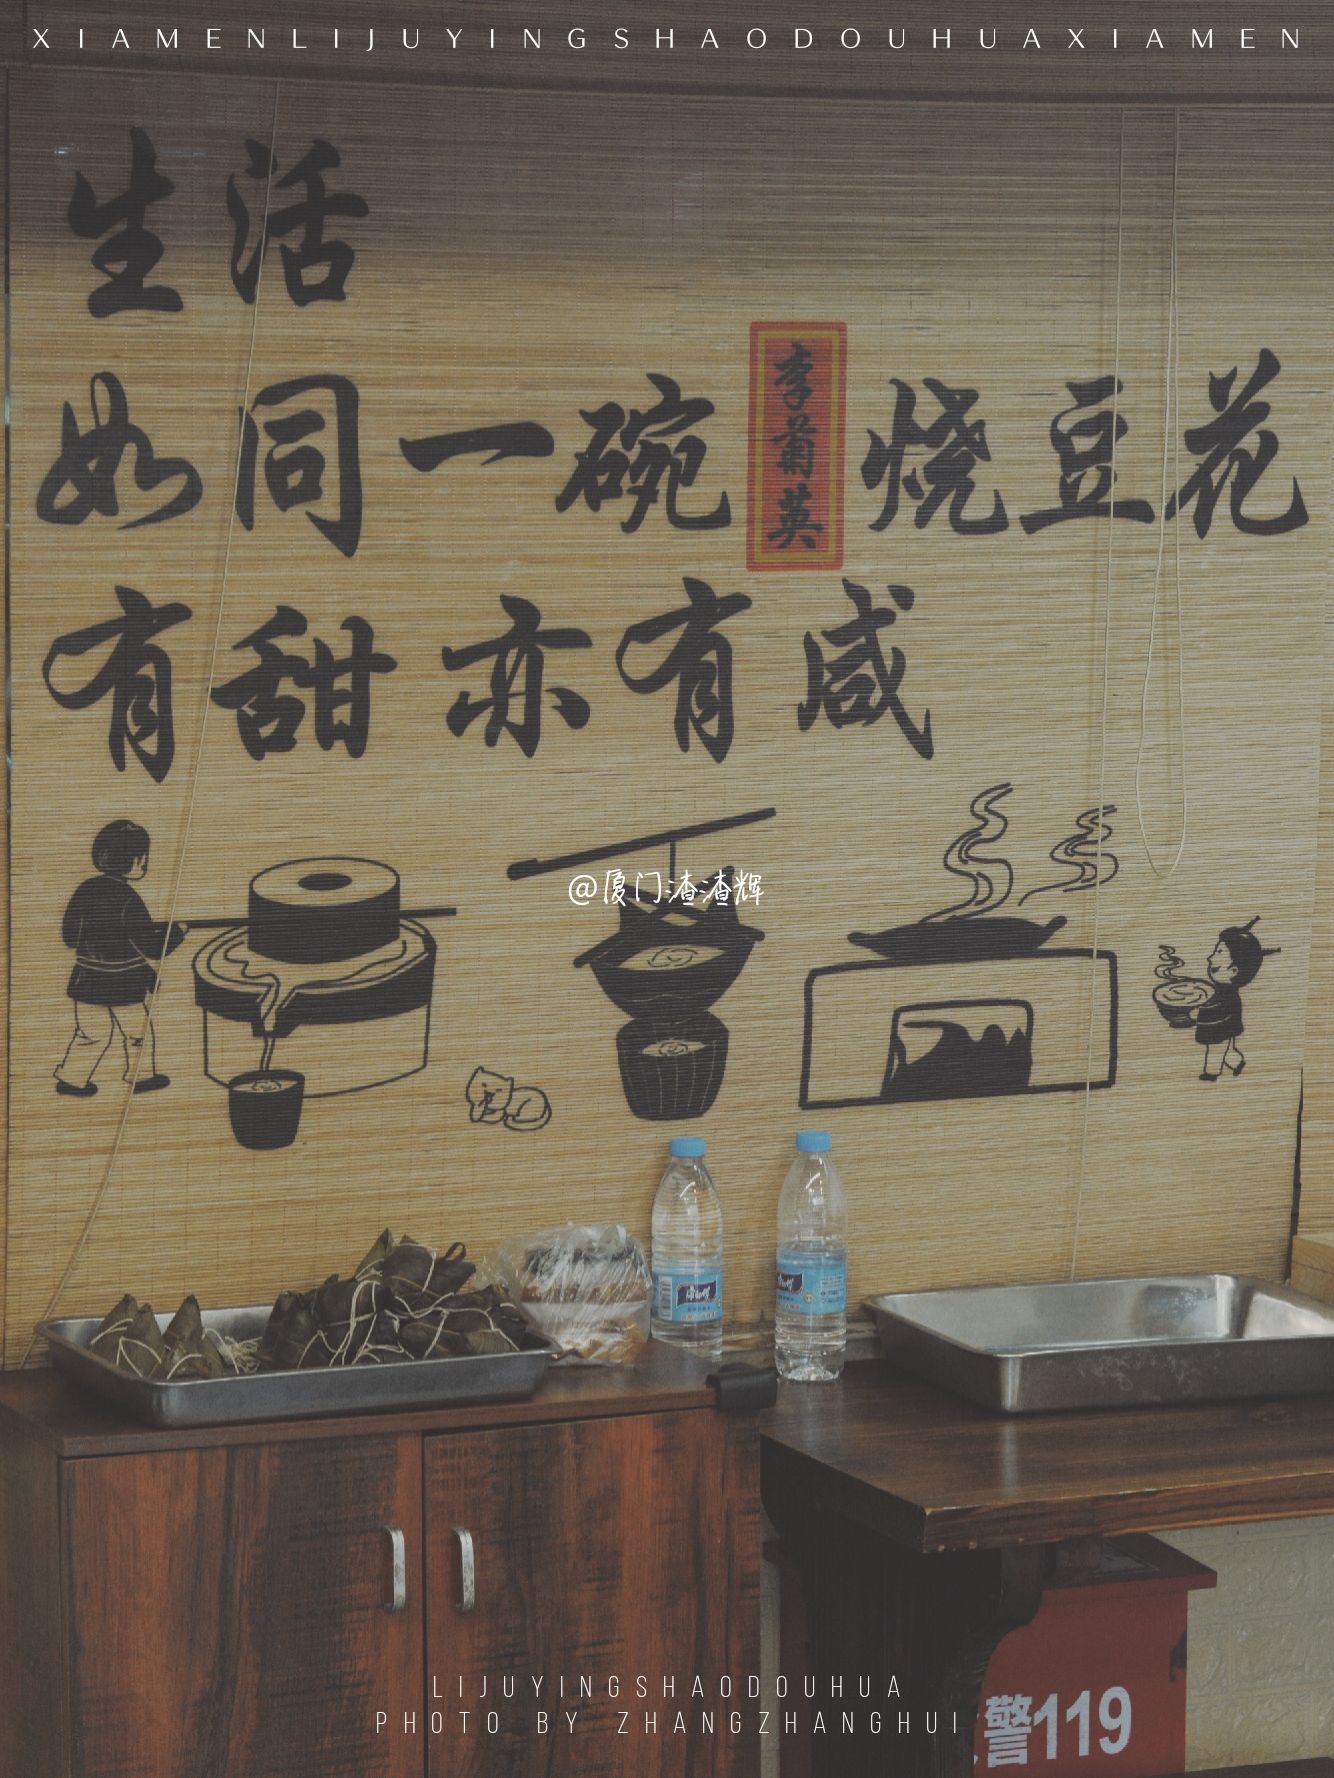 XIAMENLIJUYINGSHAODOUHUAXIAMEN
生活
如同一碗李菊英烧豆花
有甜亦有咸
@厦门渣渣辉
康师傅
康师傅
LIJUYINGSHAODOUHUA
PHOTO BY ZHANGZHANGHUI
警119